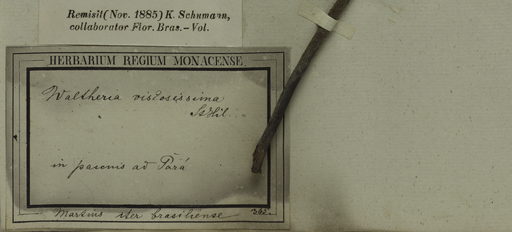 Remisit (Nov. 1885) K. Schumann,
collaborator Flor. Bras. – Vol.
HERBARIUM REGIUM MONACENSE.
Waltheria viscosissima
St Hil.
in pascuis ad Pará
Martius iter brasiliense